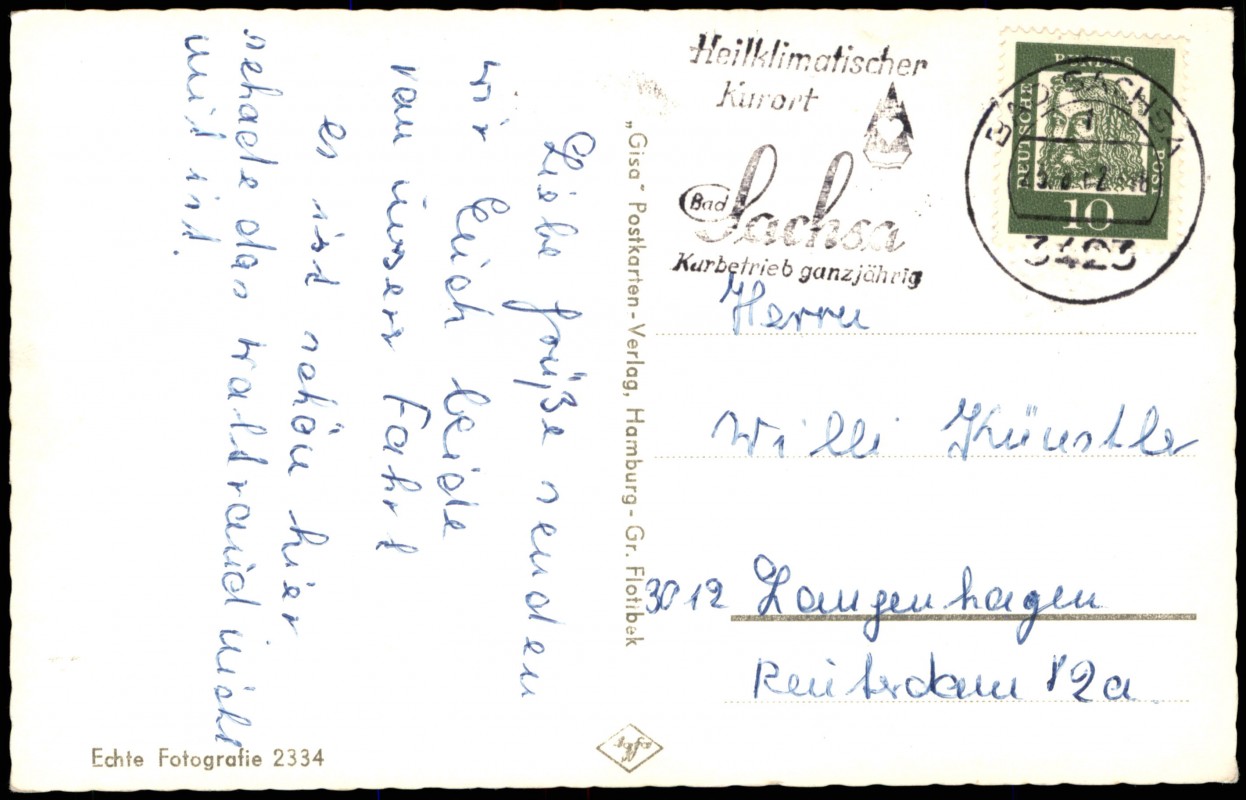 Liebe Grüße senden
wir Euch beide
von unserer Fahrt
es ist schön hier
schade das waltraud nicht
mit ist.
"Gisa" Postkarten-Verlag, Hamburg-Gr. Flottbek
Echte Fotografie 2334
Agfa
Heilklimatischer
Kurort
Bad Sachsa
Kurbetrieb ganzjährig
BAD SACHSA
1
3423
DEUTSCHE BUNDES POST
10
Herrn
Willi Künstler
3012 Langenhagen
Reuterdam 12a